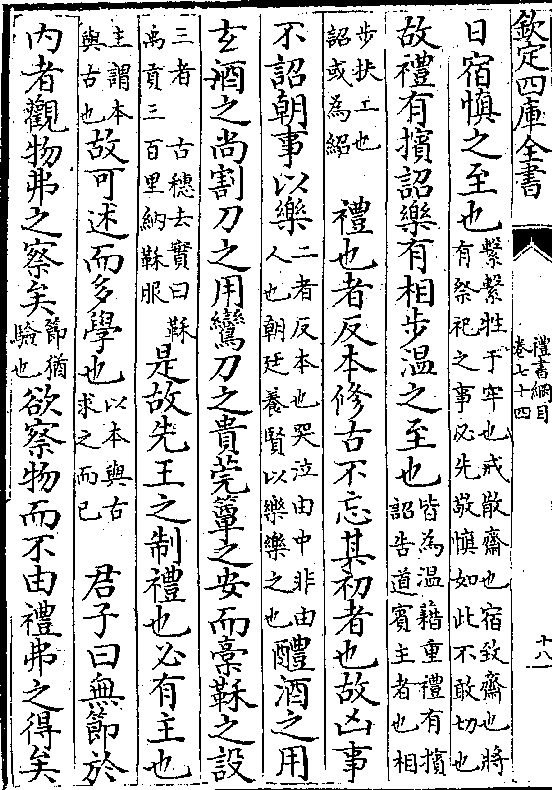 欽定四庫全書
禮書綱目
卷七十四
十八
日宿慎之至也繫繫牲于牢也戒散齋也宿致齋也將有祭祀之事必先敬慎如此不敢切也
故禮有擯詔樂有相步溫之至也皆為溫藉重禮有擯詔告道賓主者也相
步扶工也詔或為紹 禮也者反本修古不忘其初者也故凶事
不詔朝事以樂二者反本也哭泣由中非由人也朝廷養賢以樂樂之也醴酒之用
玄酒之尚割刀之用鸞刀之貴莞簟之安而稾鞂之設
三者 古穗去實曰鞂禹貢三百里納鞂服是故先王之制禮也必有主也
主謂本與古也故可述而多學也以本與古求之而已 君子曰無節於
內者觀物弗之察矣節猶驗也欲察物而不由禮弗之得矣